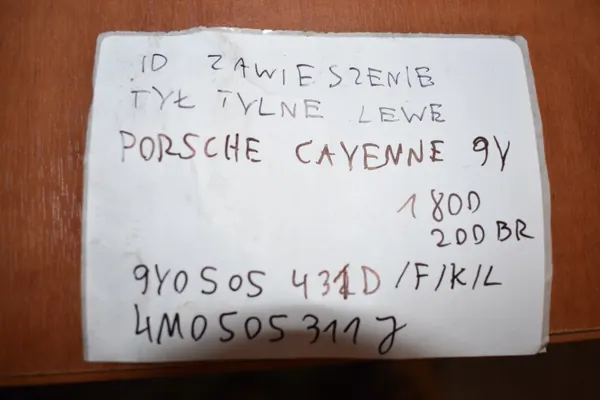 ID ZAWIESZENIE
TYŁ TYLNE LEWE
PORSCHE CAYENNE 9Y
1800
200 BR
9Y0505 431D/F/K/L
4M0505311J